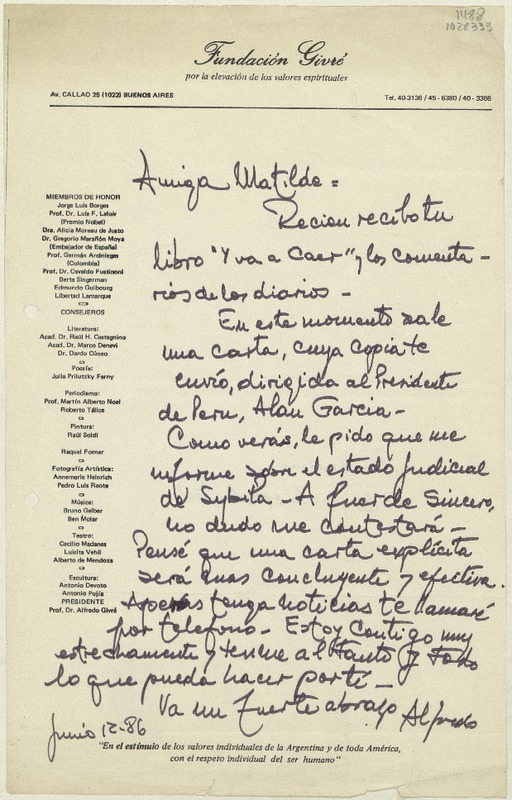 1488
1028333
Fundación Givré
por la elevación de los valores espirituales
Av. CALLAO 25 (1022) BUENOS AIRES
Tel. 40-3136 / 45 - 6380 / 40 - 3366
MIEMBROS DE HONOR
Jorge Luis Borges
Prof. Dr. Luis F. Leloir
(Premio Nobel)
Dra. Alicia Moreau de Justo
Dr. Gregorio Marañón Moya
(Embajador de España)
Prof. Germán Arciniegas
(Colombia)
Prof. Dr. Osvaldo Fustinoni
Berta Singerman
Edmundo Guibourg
Libertad Lamarque
CONSEJEROS
Literatura:
Acad. Dr. Raúl H. Castagnino
Acad. Dr. Marco Denevi
Dr. Dardo Cúneo
Poesía:
Julia Prilutzky Farny
Periodismo:
Prof. Martín Alberto Noel
Roberto Tálice
Pintura:
Raúl Soldi
Raquel Forner
Fotografía Artística:
Annemarie Heinrich
Pedro Luis Raota
Música:
Bruno Gelber
Ben Molar
Teatro:
Cecilio Madanes
Luisita Vehil
Alberto de Mendoza
Escultura:
Antonio Devoto
Antonio Pujía
PRESIDENTE
Prof. Dr. Alfredo Givré
Amiga Matilde =
Recien recibo tu
libro "Y va a Caer" y los comenta -
rios de los diarios -
En este momento sale
una carta, cuya copia te
envío, dirigida al Presidente
de Peru, Alan Garcia -
Como verás, le pido que me
informe sobre el estado judicial
de Sybila - A fuer de sincero,
no dudo me contestará -
Pensé que una carta explícita
será mas concluyente y efectiva.
Apenas tenga noticias te llamaré
por telefono - Estoy contigo muy
estrechamente y tenme al tanto y todo
lo que pueda hacer por ti -
Va un fuerte abrazo Alfredo
Junio 12-86
"En el estímulo de los valores individuales de la Argentina y de toda América,
con el respeto individual del ser humano"